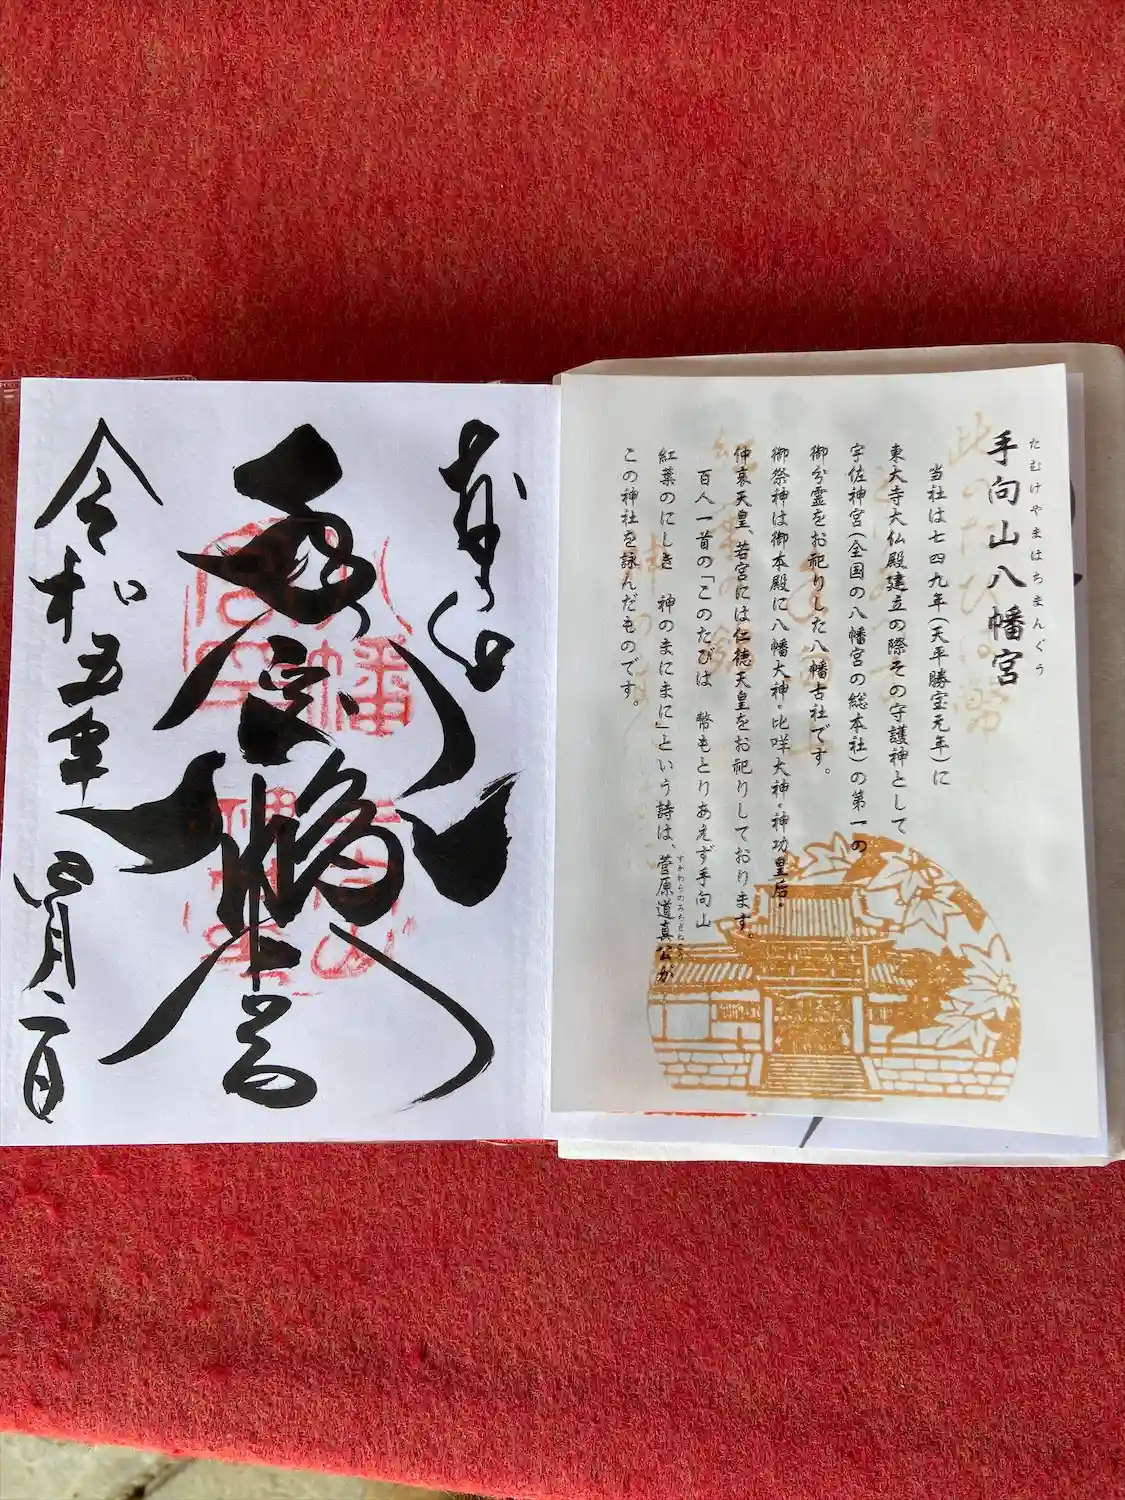 手向山八幡宮
たむけやまはちまんぐう
当社は七四九年(天平勝宝元年)に
東大寺大仏殿建立の際その守護神として
宇佐神宮(全国の八幡宮の総本社)の第一の
御分霊をお祀りした八幡古社です。
御祭神は御本殿に八幡大神・比咩大神・神功皇后・
仲哀天皇、若宮には仁徳天皇をお祀りしております。
百人一首の「このたびは 幣もとりあえず手向山
紅葉のにしき 神のまにまに」という詩は、菅原道真公が
すがわらのみちざねこう
この神社を詠んだものです。
奉拝
令和五年四月二日